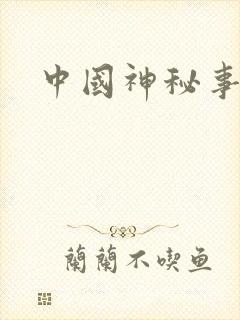 中國神秘事
蘭蘭不喫鱼